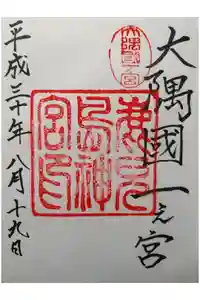 大隅國一之宮
鹿兒
島神
宮印
平成三十年八月十九日